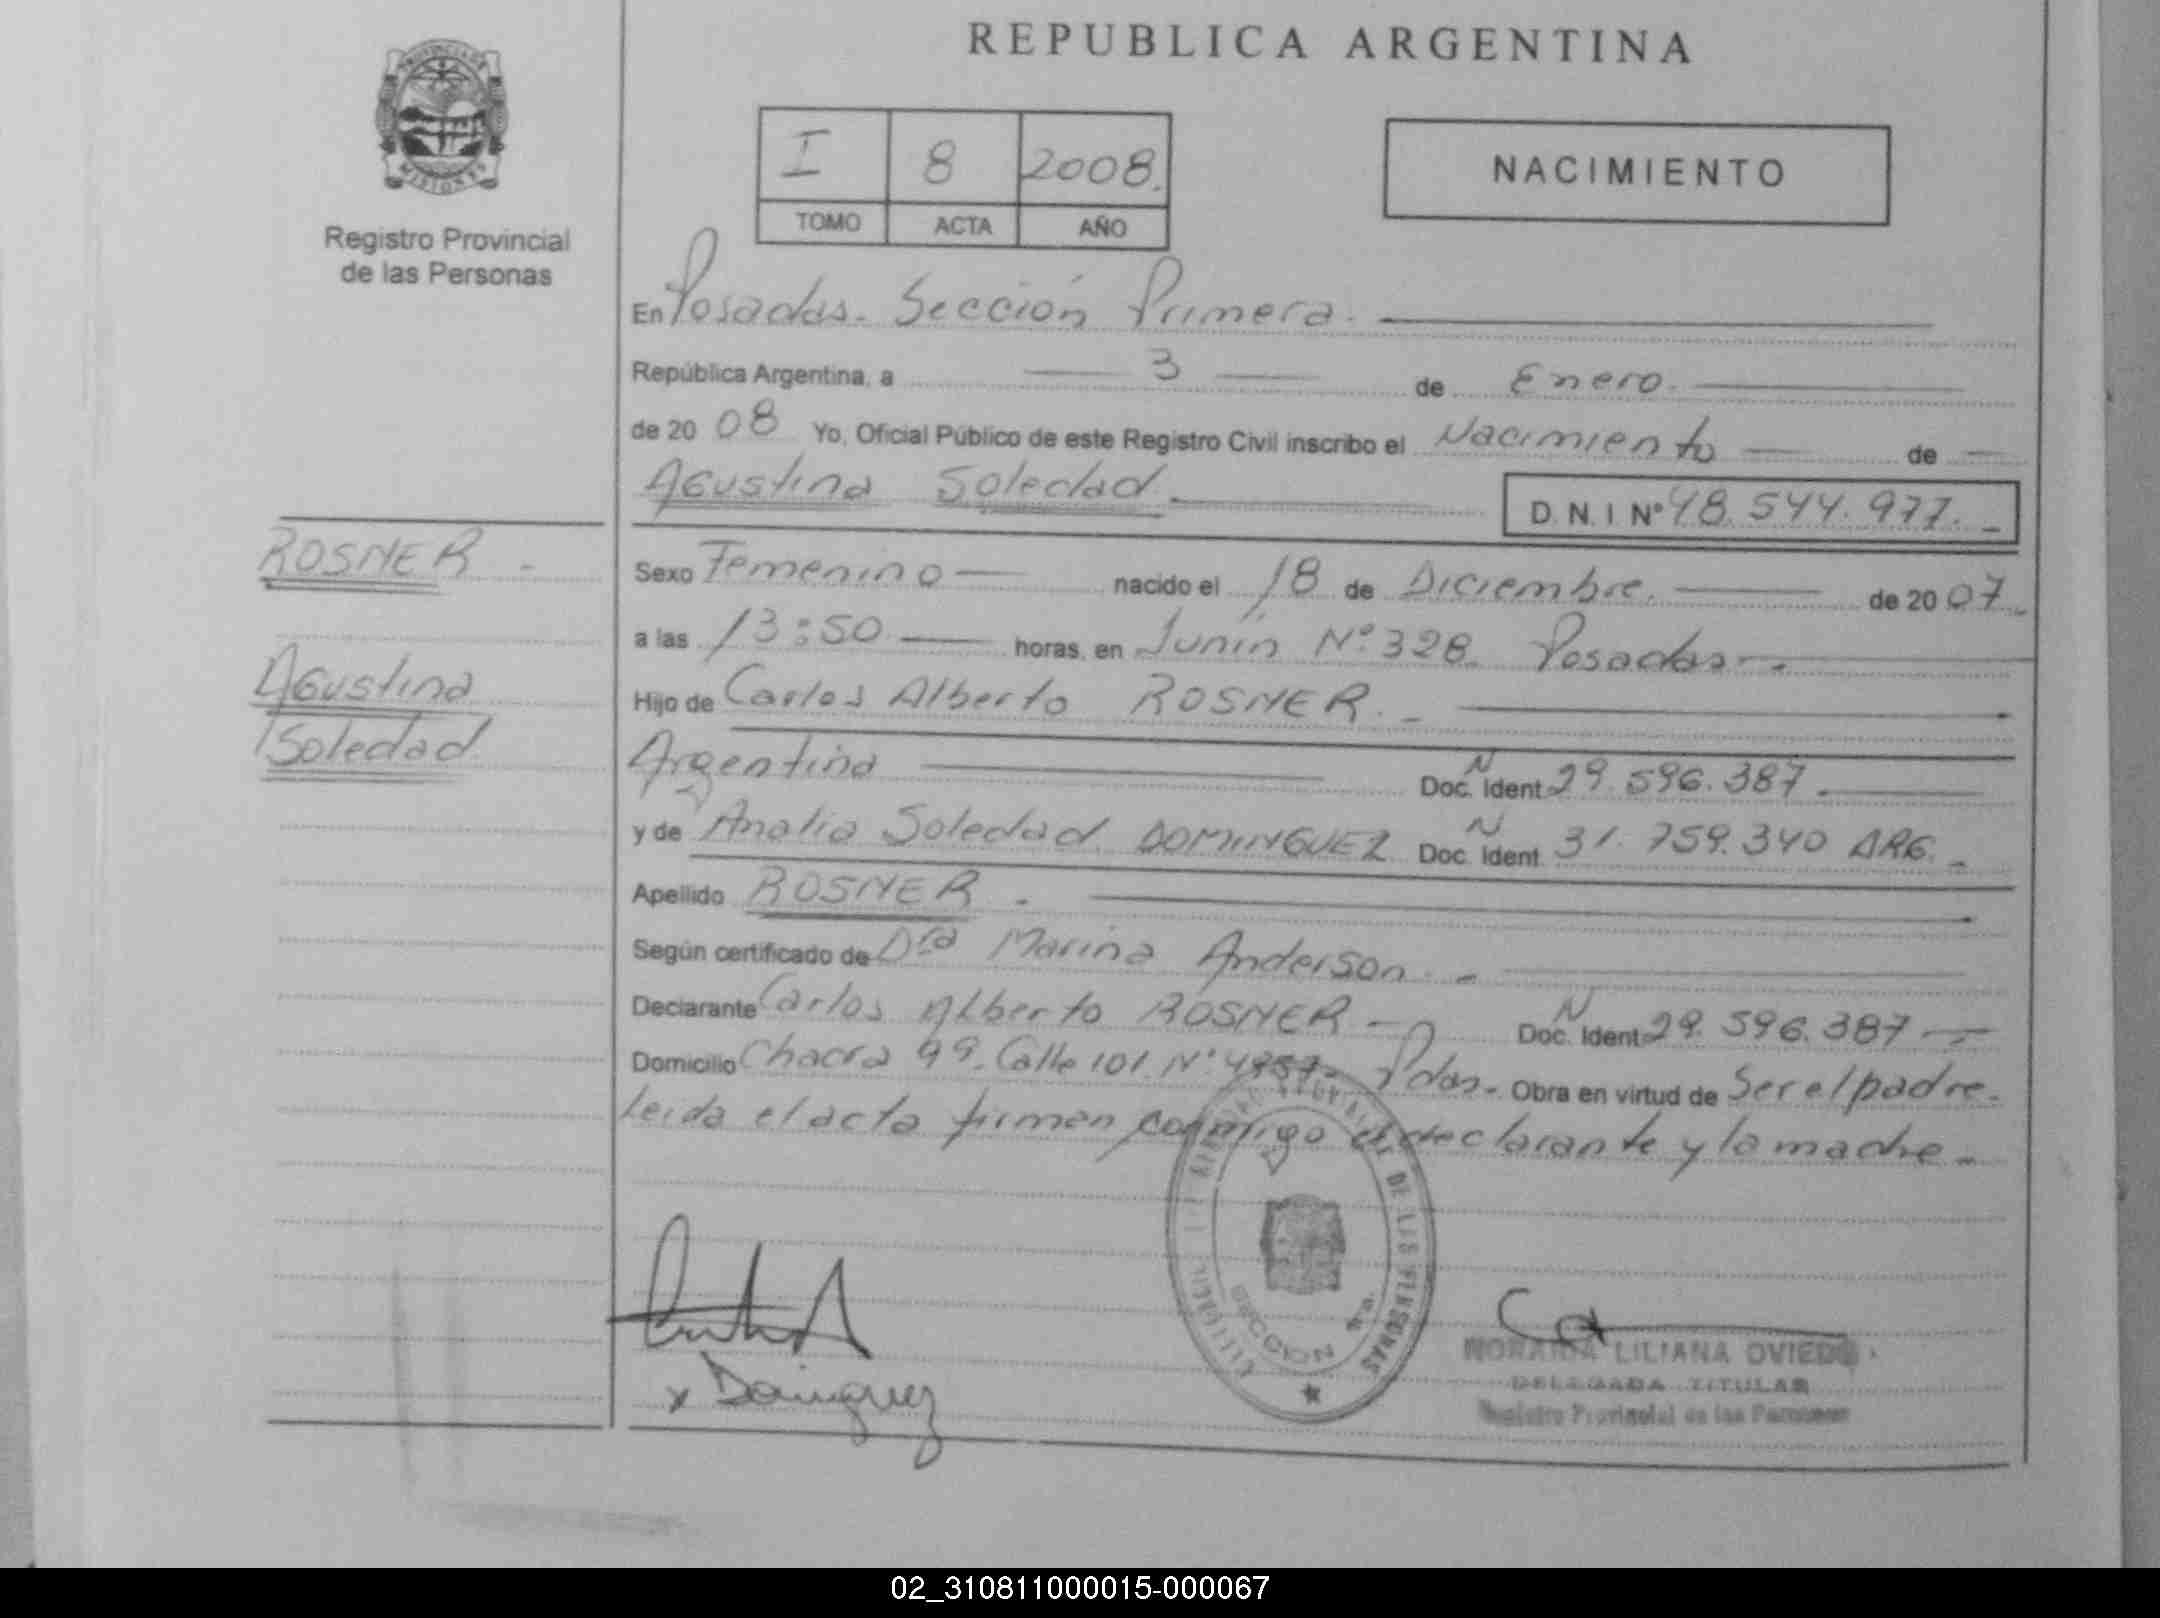 REPUBLICA ARGENTINA
PROVINCIA DE
MISIONES
Registro Provincial
de las Personas
I 8 2008.
TOMO ACTA AÑO
NACIMIENTO
En Posadas. Sección Primera.
República Argentina, a 3 de Enero.
de 2008 Yo, Oficial Público de este Registro Civil inscribo el Nacimiento de
Agustina Soledad.
D.N.I Nº 48.544.977.
ROSNER
Agustina
Soledad
Sexo Femenino nacido el 18 de Diciembre. de 2007
a las 13:50 horas, en Junín Nº 328. Posadas
Hijo de Carlos Alberto ROSNER.
Argentina Doc. Ident N 29.596.387
y de Analia Soledad DOMINGUEZ Doc. Ident N 31.759.340 ARG.
Apellido ROSNER.
Según certificado de Dra Marina Anderson.
Declarante Carlos Alberto ROSNER Doc. Ident N 29.596.387
Domicilio Chacra 99. Calle 101. Nº Pdas. Obra en virtud de Ser el padre.
Leida el acta firman conmigo el declarante y la madre.
DE LAS PERSONAS
SECCION 1ra.
NORAIDA LILIANA OVIEDO
DELEGADA TITULAR
Registro Provincial de las Personas
02_310811000015-000067